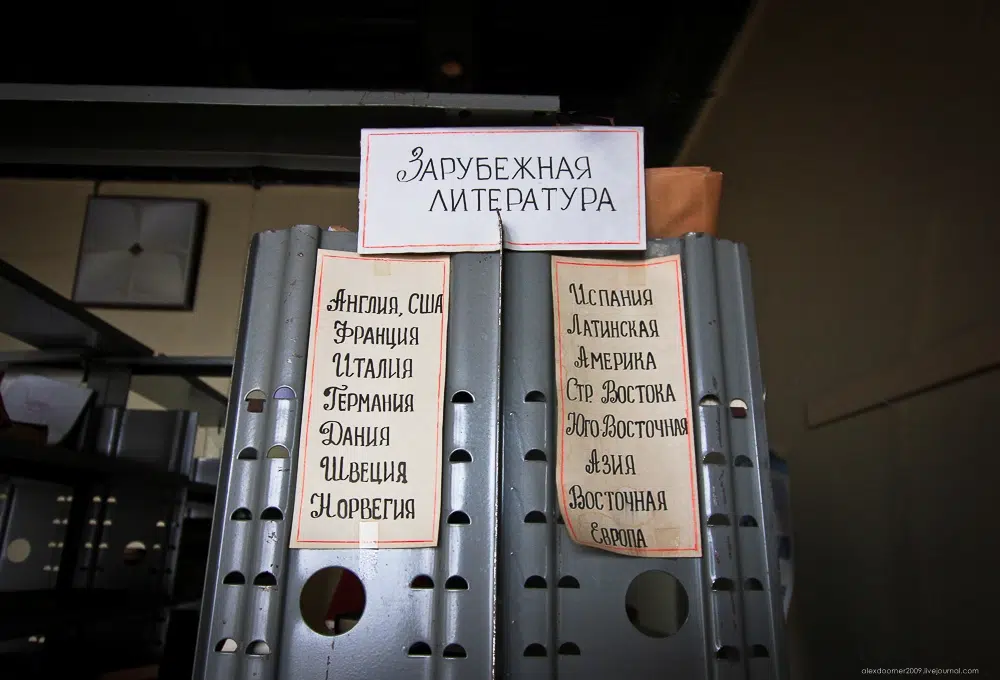 ЗАРУБЕЖНАЯ
ЛИТЕРАТУРА
Англия, США
Франция
Италия
Германия
Дания
Швеция
Норвегия
Испания
Латинская
Америка
Стр. Востока
Юго-Восточная
Азия
Восточная
Европа
alexdoomer2009.livejournal.com